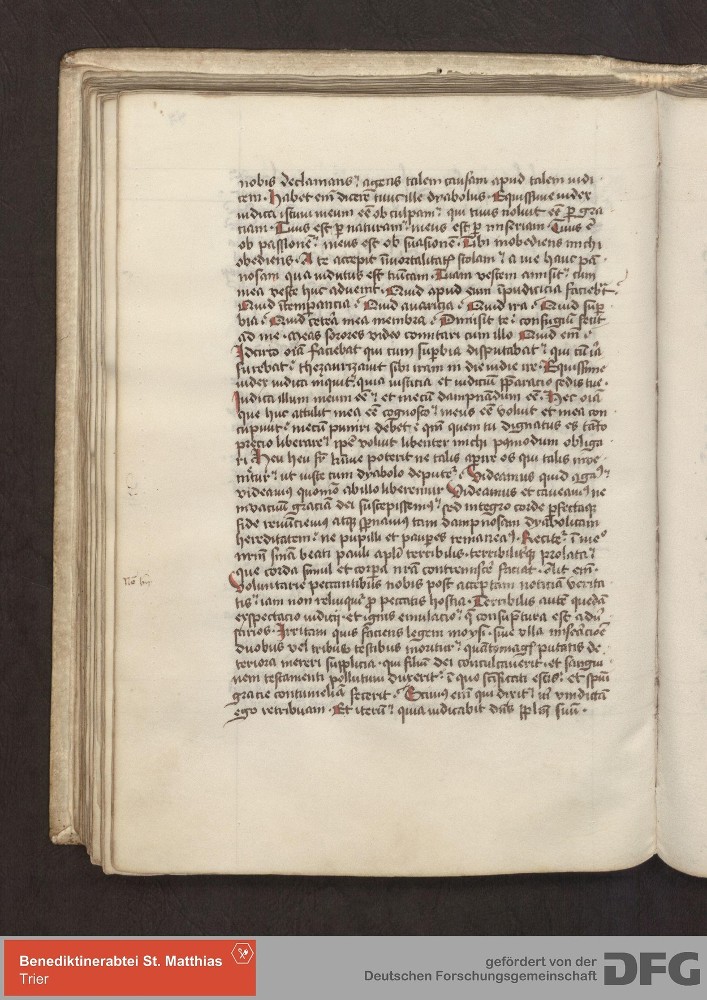 nobis declamans agens talem causam apud talem iudi
cem. Habet em dicere tunc ille dyabolus. Equissime iudex
iudica istum meum eē ob culpam qui tuus noluit eē p gra
tiam. Tuus est p naturam meus est p miseriam. Tuus ē
ob passionē meus est ob suasionē. Tibi inobediens michi
obediens. A te accepit īmortalitatis stolam a me hanc pā
nosam qua indutus est tunicam. Tuam vestem amisit cum
mea veste huc advenit. Quid apud eum īpudicicia faciebat
Quid ītemperancia. Quid avaricia. Quid ira. Quid sup
bia. Quid cetera mea membra. Dimisit te confugium fecit
ad me. Meas sorores video comitari cum illo. Quid em
Idcirco oīa faciebat qui cum supbia disputabat qui cū ira
furebat thezaurizavit sibi iram in die iudie ire. Equissime
iudex iudica inquit quia iusticia et iudiciū pparacio sedis tue.
Iudica illum meum eē et mecū dampnādum eē. Hec oīa
que huc attulit mea eē cognosco meus eē voluit et mea con
cupivit mecū puniri debet quem tu dignatus es tāto
precio liberare ipe voluit libenter michi obliga
ri. Heu heu talis
ut iuste cum dyabolo deputet. Videamus quid agam
videamus quomō ab illo liberemur. Videamus et caveamus ne
invacuū graciam dei suscepissemus sed integro corde pfectaque
fide renūciemus atque spnamus tam dampnosam dyabolicam
hereditatem ne pupilli et paupes remaneam. Recitet
nrm smā beati pauli apli terribilis terribiliterque prolata
que corda simul et corpa nra contremisce faciat. Ait em
Voluntarie peccantibus nobis post acceptam noticiā verita
tis iam non relinquit p peccatis hostia. Terribilis autē quedā
exspectacio iudicii et ignis emulacio q consuptura est adu
sarios. Irritam quis faciens legem moysi sine ulla miseracōe
duobus vel tribus testibus moritur quātomagis putatis de
teriora mereri supplicia qui filiū dei conculcaverit et sangui
nem testamenti pollutum duxerit ī quo scificati estis et spūi
gracie contumeliā fecerit. Scimus em qui dixit m vindictā
ego retribuam. Et iterū quia iudicabit dns pplm suū.
Benediktinerabtei St. Matthias
Trier
gefördert von der
Deutschen Forschungsgemeinschaft
DFG